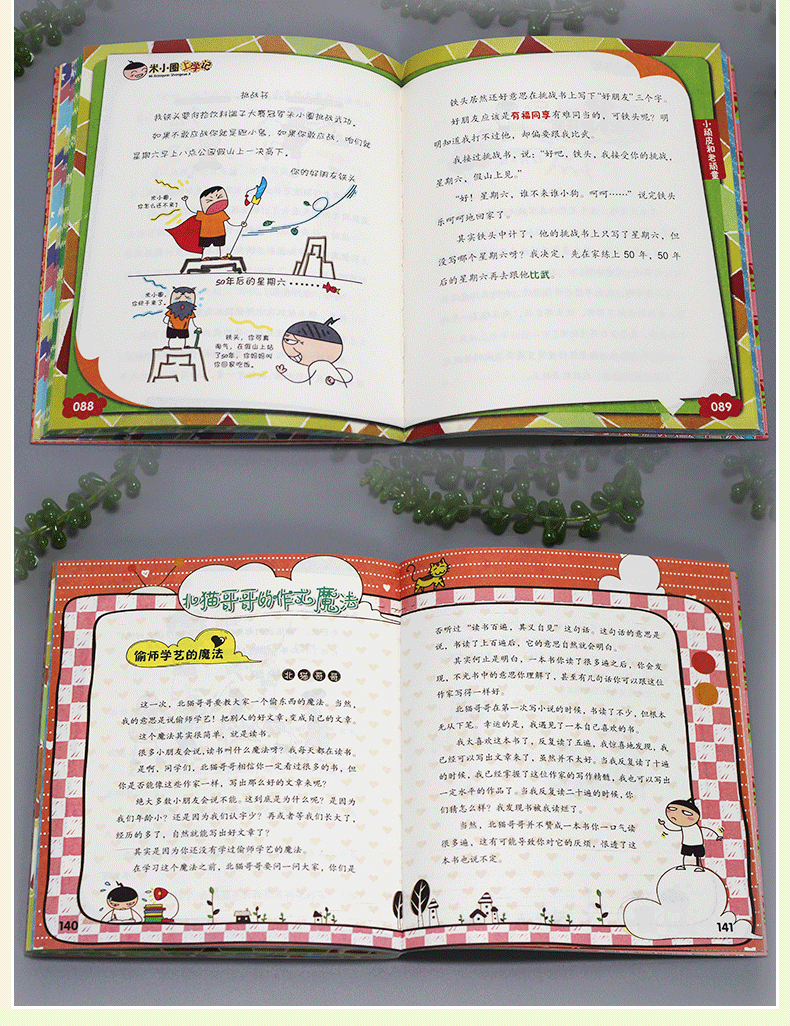 米小圈上学记
Mi Xiaoquan Shangxue Ji
挑战书
我铁头要向捡饮料罐子大赛冠军米小圈挑战武功。
如果不敢应战你就是胆小鬼，如果你敢应战，咱们就
星期六早上八点公园假山上一决高下。
你的好朋友铁头
米小圈，
你怎么还不来？
50年后的星期六
米小圈，
你终于来了。
铁头，你可真
淘气，在假山上站
了50年，你妈妈叫
你回家吃饭。
088
铁头居然还好意思在挑战书上写下“好朋友”三个字。
好朋友应该是有福同享有难同当的，可铁头呢？明
明知道我打不过他，却偏要跟我比武。
我接过挑战书，说：“好吧，铁头，我接受你的挑战，
星期六，假山上见。”
“好！星期六，谁不来谁小狗。呵呵……”说完铁头
乐呵呵地回家了。
其实铁头中计了，他的挑战书上只写了星期六，但
没写哪个星期六呀？我决定，先在家练上 50 年，50 年
后的星期六再去跟他比武。
小顽皮和老顽童
089
北猫哥哥的作文魔法
偷师学艺的魔法
北猫哥哥
这一次，北猫哥哥要教大家一个偷东西的魔法。当然，
我的意思是说偷师学艺！把别人的好文章，变成自己的文章。
这个魔法其实很简单，就是读书。
很多小朋友会说，读书叫什么魔法呀？我每天都在读书。
是啊，同学们，北猫哥哥相信你一定看过很多的书，但
你是否能像这些作家一样，写出那么好的文章来呢？
绝大多数小朋友会说不能。这到底是为什么呢？是因为
我们年龄小？还是因为我们认字少？再或者等我们长大了，
经历的多了，自然就能写出好文章了？
其实是因为你还没有学过偷师学艺的魔法。
在学习这个魔法之前，北猫哥哥要问一问大家，你们是
140
否听过“读书百遍，其义自见”这句话。这句话的意思是
说，书读了上百遍后，它的意思自然就会明白。
其实何止是明白，一本书你读了很多遍之后，你会发
现，不光书中的意思你理解了，甚至有几句话你可以跟这位
作家写得一样好。
北猫哥哥在第一次写小说的时候，书读了不少，但根本
无从下笔。幸运的是，我遇见了一本自己喜欢的书。
我太喜欢这本书了，反复读了五遍，我惊喜地发现，我
已经可以写出文章来了，虽然并不太好。当我反复读了十遍
的时候，我已经掌握了这位作家的写作精髓，我也可以写出
一定水平的作品了。当我反复读二十遍的时候，你
们猜怎么样？我发现书被我读烂了。
当然，北猫哥哥并不赞成一本书你一口气读
很多遍，这有可能导致你对它的厌烦，恨透了这
本书也说不定。
141